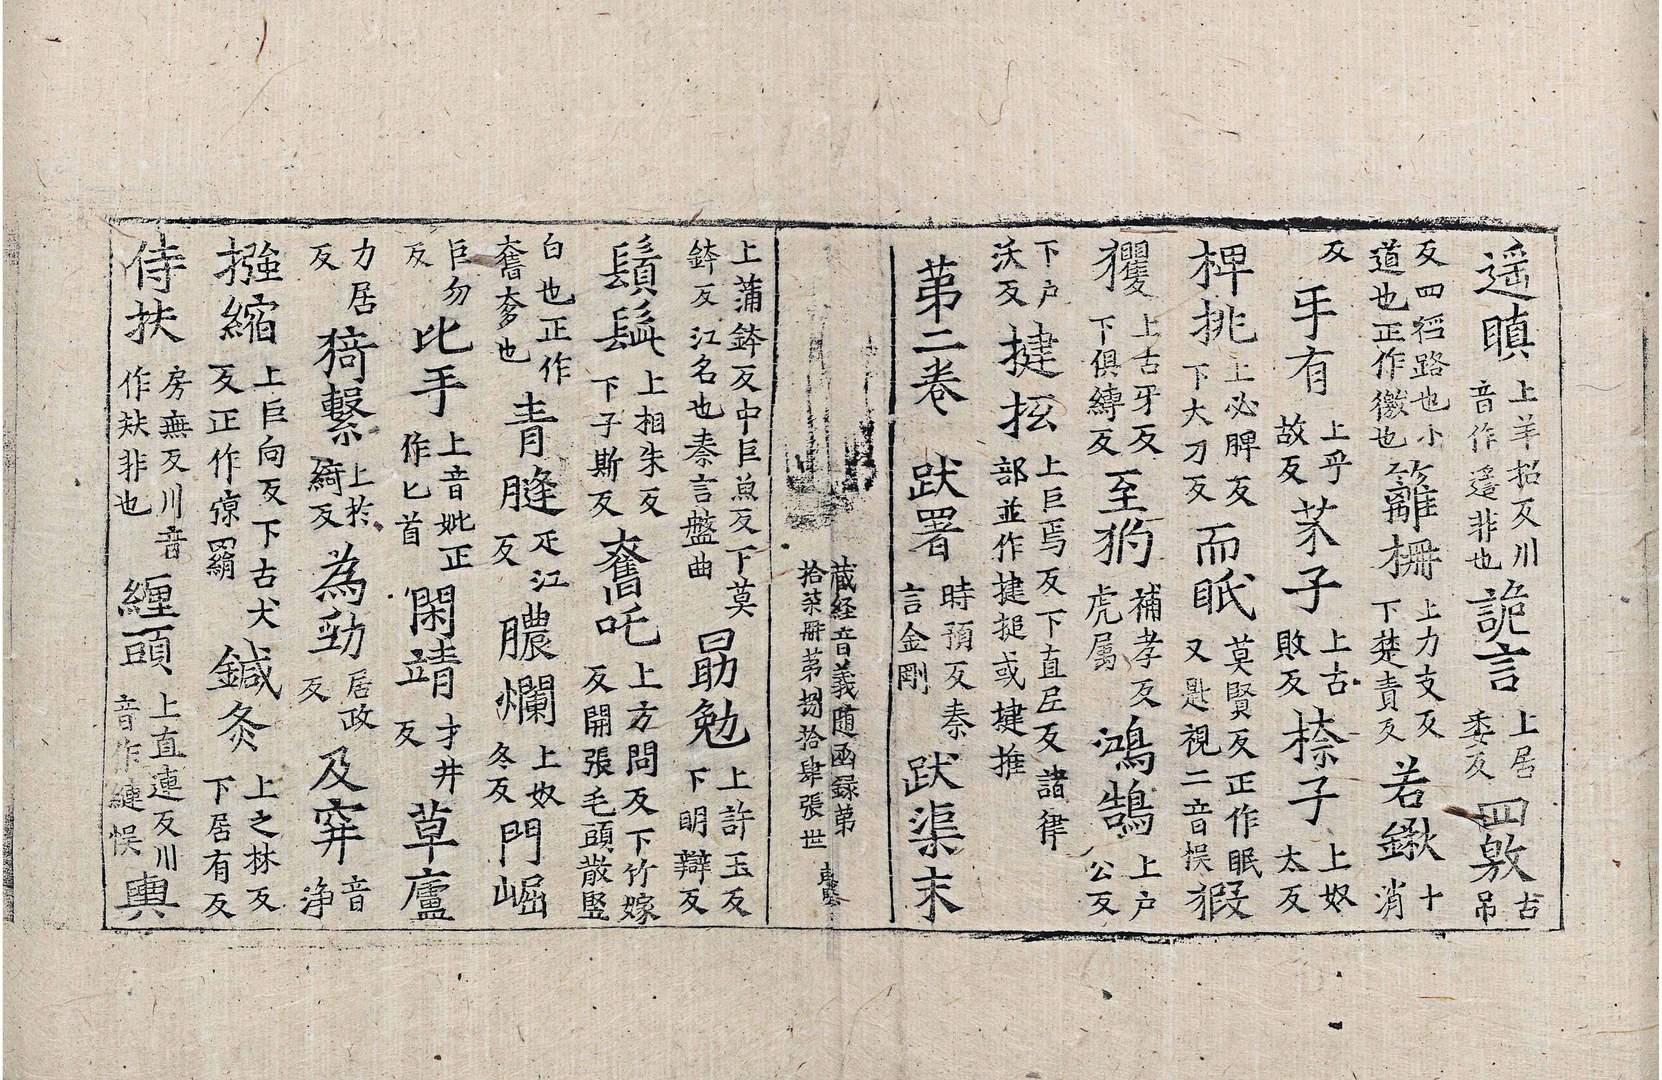 遥瞋上羊招反川音作遥非也詭言上居委反四敫古吊
反四徑路也小道也正作徼也籬柵上力支反下楚責反若鍬十消
反乎有上乎故反芥子上古敗反㮈子上奴太反
椑挑上必脾反下大刀反而眂莫賢反正作眠又匙視二音悮猳
玃上古牙反下俱縛反至犳補孝反虎属鴻鵠上户公反
下户沃反揵抎上巨焉反下直㢪反諸律部並作揵搥或揵推
苐二卷 跋署時預反秦言金剛 跋渠末
藏經音義隨函録苐
拾柒冊苐捌拾肆張世
上蒲鉢反中巨魚反下莫鉢反江名也秦言盤曲勗勉上許玉反下明辯反
鬚髭上相朱反下子斯反奮吒上方問反下竹嫁反開張毛頭散竪
白也正作奮奓也青膖疋江反膿爛上奴冬反門崛
巨勿反比手上音妣正作匕首閑靖才井反草廬
力居反猗繋上於綺反為勁居政反及穽音浄
摾縮上巨向反下古犬反正作弶羂鍼灸上之林反下居有反
侍扶房無反川音作扶非也纏頭上直連反川音作縺悮輿